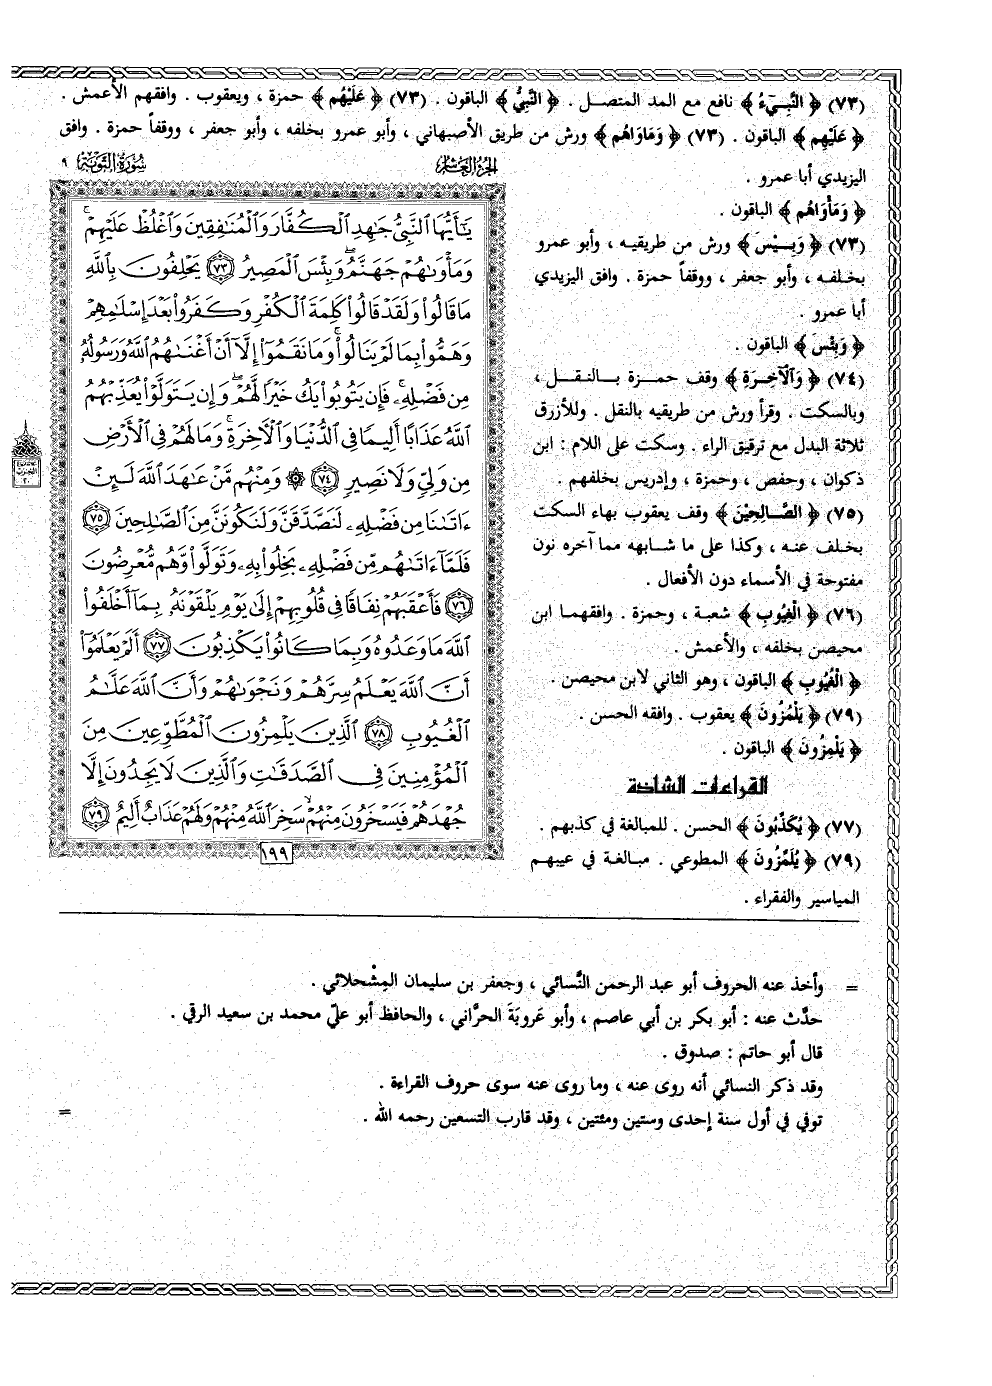 (٧٣) ﴿ النَّبِيءُ ﴾ نافع مع المد المتصل . ﴿ النَّبِيُّ ﴾ الباقون . (٧٣) ﴿ عَلَيْهُم ﴾ حمزة ، ويعقوب . وافقهم الأعمش .
﴿ عَلَيْهِم ﴾ الباقون . (٧٣) ﴿ وَمَاوَاهُم ﴾ ورش من طريق الأصبهاني ، وأبو عمرو بخلفه ، وأبو جعفر ، ووقفاً حمزة . وافق
اليزيدي أبا عمرو .
﴿ وَمَأْوَاهُم ﴾ الباقون .
(٧٣) ﴿ وَبِيْسَ ﴾ ورش من طريقيه ، وأبو عمرو
بخلفه ، وأبو جعفر ، ووقفاً حمزة . وافق اليزيدي
أبا عمرو .
﴿ وَبِئْسَ ﴾ الباقون .
(٧٤) ﴿ وَالْآخِرَةِ ﴾ وقف حمزة بالنقل ،
وبالسكت . وقرأ ورش من طريقيه بالنقل . وللأزرق
ثلاثة البدل مع ترقيق الراء . وسكت على اللام : ابن
ذكوان ، وحفص ، وحمزة ، وإدريس بخلفهم .
(٧٥) ﴿ الصَّالِحِيْنَ ﴾ وقف يعقوب بهاء السكت
بخلف عنه ، وكذا على ما شابهه مما آخره نون
مفتوحة في الأسماء دون الأفعال .
(٧٦) ﴿ الْغِيُوبِ ﴾ شعبة ، وحمزة . وافقهما ابن
محيصن بخلفه ، والأعمش .
﴿ الْغُيُوبِ ﴾ الباقون ، وهو الثاني لابن محيصن .
(٧٩) ﴿ يَلْمُزُونَ ﴾ يعقوب . وافقه الحسن .
﴿ يَلْمِزُونَ ﴾ الباقون .
القراءات الشاذة
(٧٧) ﴿ يُكَذِّبُونَ ﴾ الحسن . للمبالغة في كذبهم .
(٧٩) ﴿ يُلَمِّزُونَ ﴾ المطوعي . مبالغة في عيبهم
المياسير والفقراء .
الجزء العاشر
سورة التوبة ٩
يَٰٓأَيُّهَا ٱلنَّبِىُّ جَٰهِدِ ٱلْكُفَّارَ وَٱلْمُنَٰفِقِينَ وَٱغْلُظْ عَلَيْهِمْ ۚ
وَمَأْوَىٰهُمْ جَهَنَّمُ ۖ وَبِئْسَ ٱلْمَصِيرُ ﴿٧٣﴾ يَحْلِفُونَ بِٱللَّهِ
مَا قَالُوا۟ وَلَقَدْ قَالُوا۟ كَلِمَةَ ٱلْكُفْرِ وَكَفَرُوا۟ بَعْدَ إِسْلَٰمِهِمْ
وَهَمُّوا۟ بِمَا لَمْ يَنَالُوا۟ ۚ وَمَا نَقَمُوٓا۟ إِلَّآ أَنْ أَغْنَىٰهُمُ ٱللَّهُ وَرَسُولُهُۥ
مِن فَضْلِهِۦ ۚ فَإِن يَتُوبُوا۟ يَكُ خَيْرًا لَّهُمْ ۖ وَإِن يَتَوَلَّوْا۟ يُعَذِّبْهُمُ
ٱللَّهُ عَذَابًا أَلِيمًا فِى ٱلدُّنْيَا وَٱلْءَاخِرَةِ ۚ وَمَا لَهُمْ فِى ٱلْأَرْضِ
مِن وَلِىٍّ وَلَا نَصِيرٍ ﴿٧٤﴾ ۞ وَمِنْهُم مَّنْ عَٰهَدَ ٱللَّهَ لَئِنْ
ءَاتَىٰنَا مِن فَضْلِهِۦ لَنَصَّدَّقَنَّ وَلَنَكُونَنَّ مِنَ ٱلصَّٰلِحِينَ ﴿٧٥﴾
فَلَمَّآ ءَاتَىٰهُم مِّن فَضْلِهِۦ بَخِلُوا۟ بِهِۦ وَتَوَلَّوا۟ وَّهُم مُّعْرِضُونَ
﴿٧٦﴾ فَأَعْقَبَهُمْ نِفَاقًا فِى قُلُوبِهِمْ إِلَىٰ يَوْمِ يَلْقَوْنَهُۥ بِمَآ أَخْلَفُوا۟
ٱللَّهَ مَا وَعَدُوهُ وَبِمَا كَانُوا۟ يَكْذِبُونَ ﴿٧٧﴾ أَلَمْ يَعْلَمُوٓا۟
أَنَّ ٱللَّهَ يَعْلَمُ سِرَّهُمْ وَنَجْوَىٰهُمْ وَأَنَّ ٱللَّهَ عَلَّٰمُ
ٱلْغُيُوبِ ﴿٧٨﴾ ٱلَّذِينَ يَلْمِزُونَ ٱلْمُطَّوِّعِينَ مِنَ
ٱلْمُؤْمِنِينَ فِى ٱلصَّدَقَٰتِ وَٱلَّذِينَ لَا يَجِدُونَ إِلَّا
جُهْدَهُمْ فَيَسْخَرُونَ مِنْهُمْ ۙ سَخِرَ ٱللَّهُ مِنْهُمْ وَلَهُمْ عَذَابٌ أَلِيمٌ ﴿٧٩﴾
١٩٩
= وأخذ عنه الحروف أبو عبد الرحمن النَّسائي ، وجعفر بن سليمان المِشْحلائي .
حدَّث عنه : أبو بكر بن أبي عاصم ، وأبو عَروبَةَ الحرَّاني ، والحافظ أبو عليّ محمد بن سعيد الرقي .
قال أبو حاتم : صدوق .
وقد ذكر النسائي أنه روى عنه ، وما روى عنه سوى حروف القراءة .
توفي في أول سنة إحدى وستين ومئتين ، وقد قارب التسعين رحمه الله . =